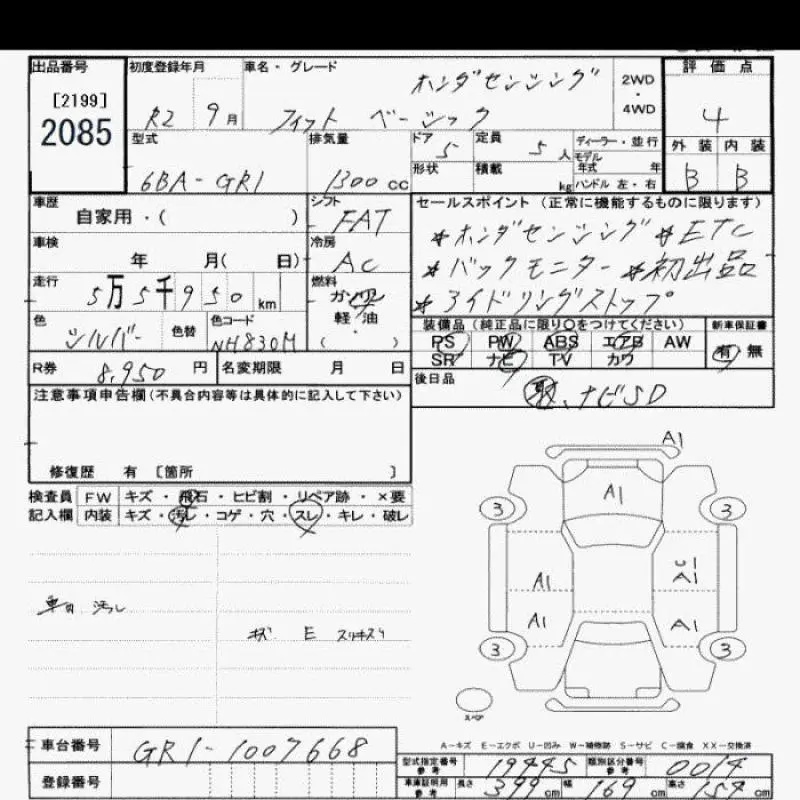 出品番号 初度登録年月 車名・グレード 評価点
[2199]
2085
R2 9月 フィット ベーシック ホンダセンシング 2WD・4WD 4
型式 排気量 ドア 5 定員 5人 ディーラー・並行 外装 内装
6BA-GR1 1300cc 形状 積載 kg モデル年式 年 ハンドル 左・右 B B
車歴 自家用・( ) シフト FAT セールスポイント (正常に機能するものに限ります)
車検 年 月( 日) 冷房 AC *ホンダセンシング *ETC
走行 5万5千950km 燃料 ガソリン *バックモニター *初出品
色 シルバー 色替 色コード NH830M 軽・油 ( ) *アイドリングストップ
装備品 (純正品に限り○をつけてください) 新車保証書
PS PW ABS エアB AW 有 無
SR ナビ TV カワ
R券 8,950円 名変期限 月 日
後日品 取、ナビSD
注意事項申告欄 (不具合内容等は具体的に記入して下さい)
修復歴 有 [箇所 ]
検査員 FW キズ・飛石・ヒビ割・リペア跡・×要
記入欄 内装 キズ・汚レ・コゲ・穴・スレ・キレ・破レ
A1
A1
3 3
U1
A1 A1
A1 A1
3 3
スペア
A-キズ E-エクボ U-凹み W-補修跡 S-サビ C-腐食 XX-交換済
車台番号 GR1-1007668
型式指定番号 参考 19445 類別区分番号 参考 0014
登録番号
車庫証明用 参考 長さ 399cm 幅 169cm 高さ 154cm